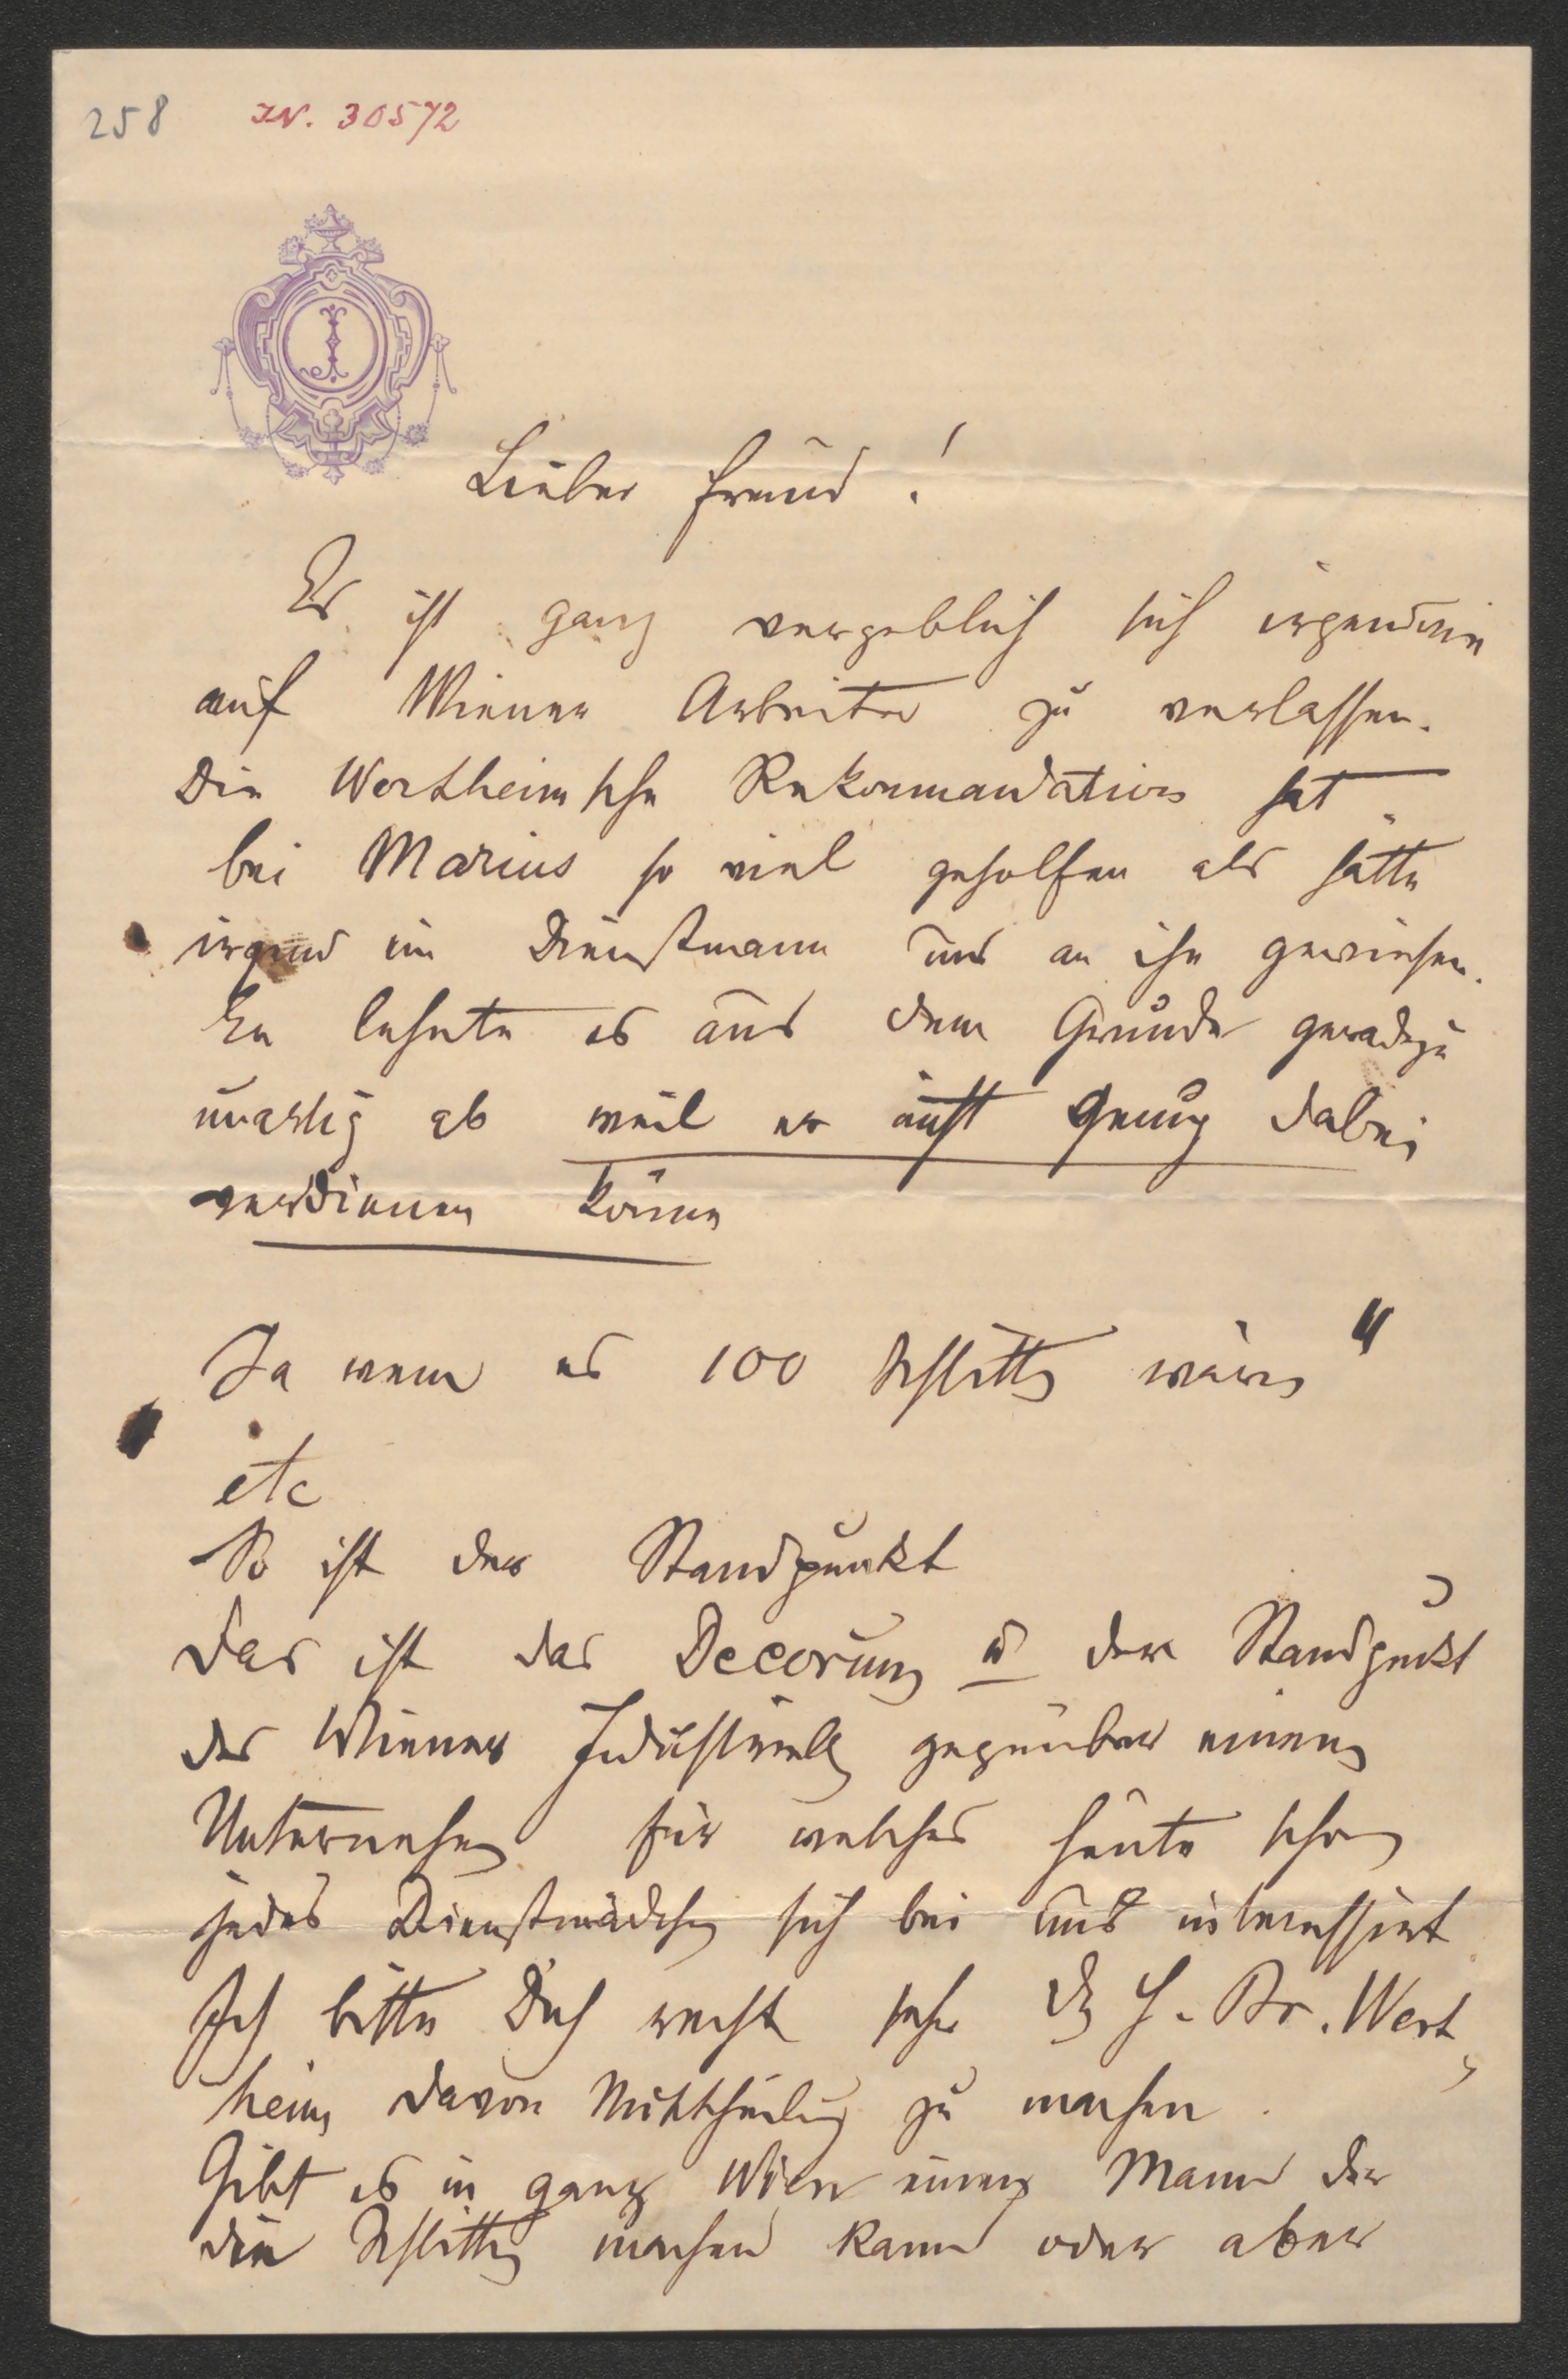 258 IN. 30572
J
Lieber Freund!
Es ist ganz vergeblich sich irgendwie
auf Wiener Arbeiter zu verlassen.
Die Wertheimsche Rekommandation hat
bei Marius so viel geholfen als hätte
irgend ein Dienstmann uns an ihn gewiesen.
Er lehnte es aus dem Grunde geradezu
unartig ab weil er nicht genug dabei
verdienen könne
Ja wenn es 100 Schlitten wären"
etc
So ist der Standpunkt
Das ist das Decorum u der Standpunkt
der Wiener Industriellen gegenüber einem
Unternehmen für welches heute schon
jedes Dienstmädchen sich bei uns interessirt
Ich bitte Dich recht sehr H. Br. Wert
heim davon Mittheilung zu machen.
Gibt es in ganz Wien einen Mann der
die Schlitten machen kann oder aber